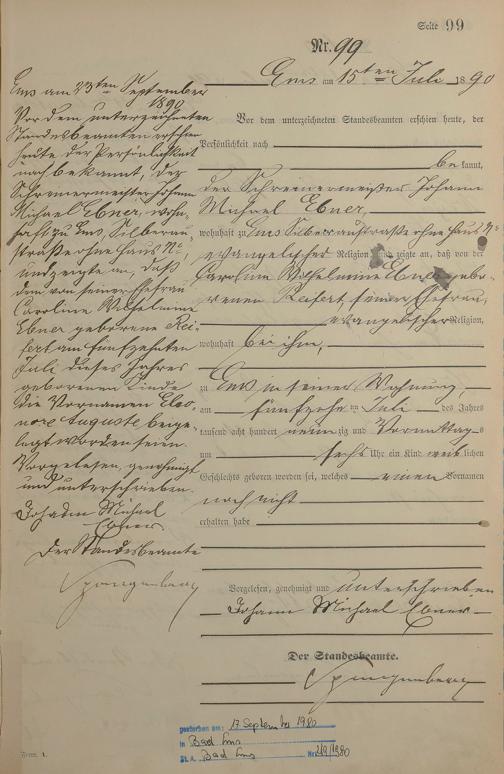 Seite 99
Nr. 99
Ems am 15ten Juli 1890
Vor dem unterzeichneten Standesbeamten erschien heute, der
Persönlichkeit nach
bekannt,
der Schreinermeister Johann
Michael Ebner,
wohnhaft zu Ems Silberaustraße ohne Haus N°
evangelischer Religion und zeigte an, daß von der
Caroline Wilhelmine Ebner gebo-
renen Reifert seiner Ehefrau,
evangelischer Religion,
wohnhaft bei ihm,
zu Ems in seiner Wohnung,
am fünfzehnten Juli des Jahres
tausend acht hundert neunzig und Vormittags
um sechs Uhr ein Kind weiblichen
Geschlechts geboren worden sei, welches einen Vornamen
noch nicht
erhalten habe
Vorgelesen, genehmigt und unterschrieben
Johann Michael Ebner
Der Standesbeamte.
Spangenberg
Ems am 23ten September
1890
Vor dem unterzeichneten
Standesbeamten erschien
heute der Persönlichkeit
nach bekannt, der
Schreinermeister Johann
Michael Ebner, wohn-
haft zu Ems, Silberau-
straße ohne Haus N°
und zeigte an, daß
dem von seiner Ehefrau
Caroline Wilhelmine
Ebner geborene Rei-
fert am fünfzehnten
Juli dieses Jahres
geborenen Kinde
die Vornamen Eleo-
nore Auguste beige-
legt worden seien.
Vorgelesen, genehmigt
und unterschrieben.
Johann Michael
Ebner
Der Standesbeamte
Spangenberg
gestorben am: 17. September 1980
in Bad Ems
St. A. Bad Ems Nr. 219/1980
Form. 1.